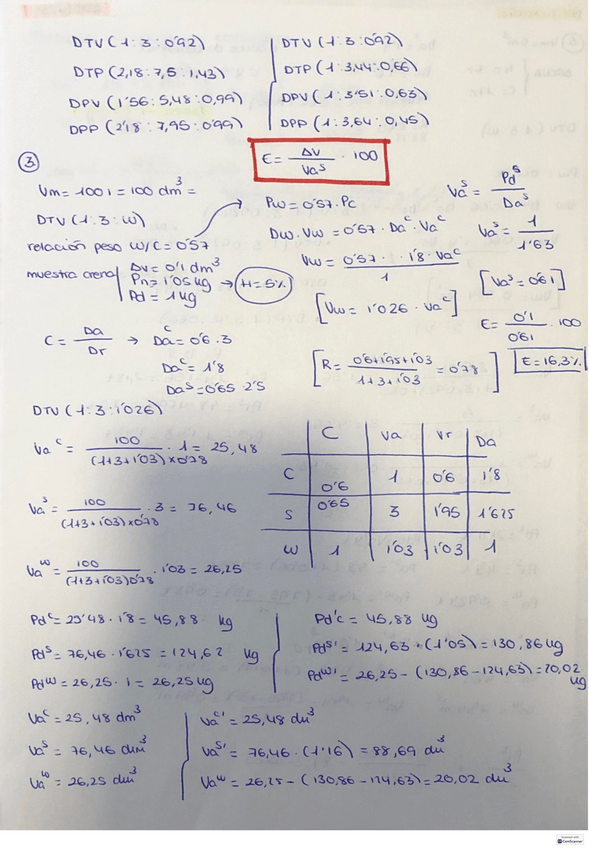 DTV (1:3:0'92)
DTP (2,18:7,5:1,43)
DPV (1'56:5,48:0,99)
DPP (2'18:7,95:0'99)
DTV (1:3:0'92)
DTP (1:3,44:0,66)
DPV (1:3'51:0,63)
DPP (1:3,64:0,45)
E = ΔV / Va^s · 100
③
Vm = 100 l = 100 dm³ =
DTV (1:3:w)
relación peso w/c = 0'57
muestra arena
ΔV = 0'1 dm³
Pn = 1'05 kg → H = 5%
Pd = 1 kg
Pw = 0'57 · Pc
Dw · Vw = 0'57 · Da^c · Va^c
Vw = 0'57 · 1'8 · Va^c / 1
[Vw = 1'026 · Va^c]
Va^s = Pd^s / Da^s
Va^s = 1 / 1'63
[Va^s = 0'61]
E = 0'1 / 0'61 · 100
E = 16,3%
C = Da / Dr → Da^c = 0'6 · 3
Da^c = 1'8
Da^s = 0'65 · 2'5
[R = 0'6+1'95+1'03 / 1+3+1'03 = 0'78]
DTV (1:3:1'026)
Va^c = 100 / (1+3+1'03)x0'78 · 1 = 25,48
Va^s = 100 / (1+3+1'03)x0'78 · 3 = 76,46
Va^w = 100 / (1+3+1'03)0'78 · 1'03 = 26,25
C Va Vr Da
C 0'6 1 0'6 1'8
S 0'65 3 1'95 1'625
W 1 1'03 1'03 1
Pd^c = 25'48 · 1'8 = 45,88 kg
Pd^s = 76,46 · 1'625 = 124,62 kg
Pd^w = 26,25 · 1 = 26,25 kg
Pd'c = 45,88 kg
Pd^s' = 124,63 + (1'05) = 130,86 kg
Pd^w' = 26,25 - (130,86 - 124,63) = 20,02 kg
Va^c = 25,48 dm³
Va^s = 76,46 dm³
Va^w = 26,25 dm³
Va^c' = 25,48 dm³
Va^s' = 76,46 · (1'16) = 88,69 dm³
Va^w = 26,25 - (130,86 - 124,63) = 20,02 dm³
CamScanner